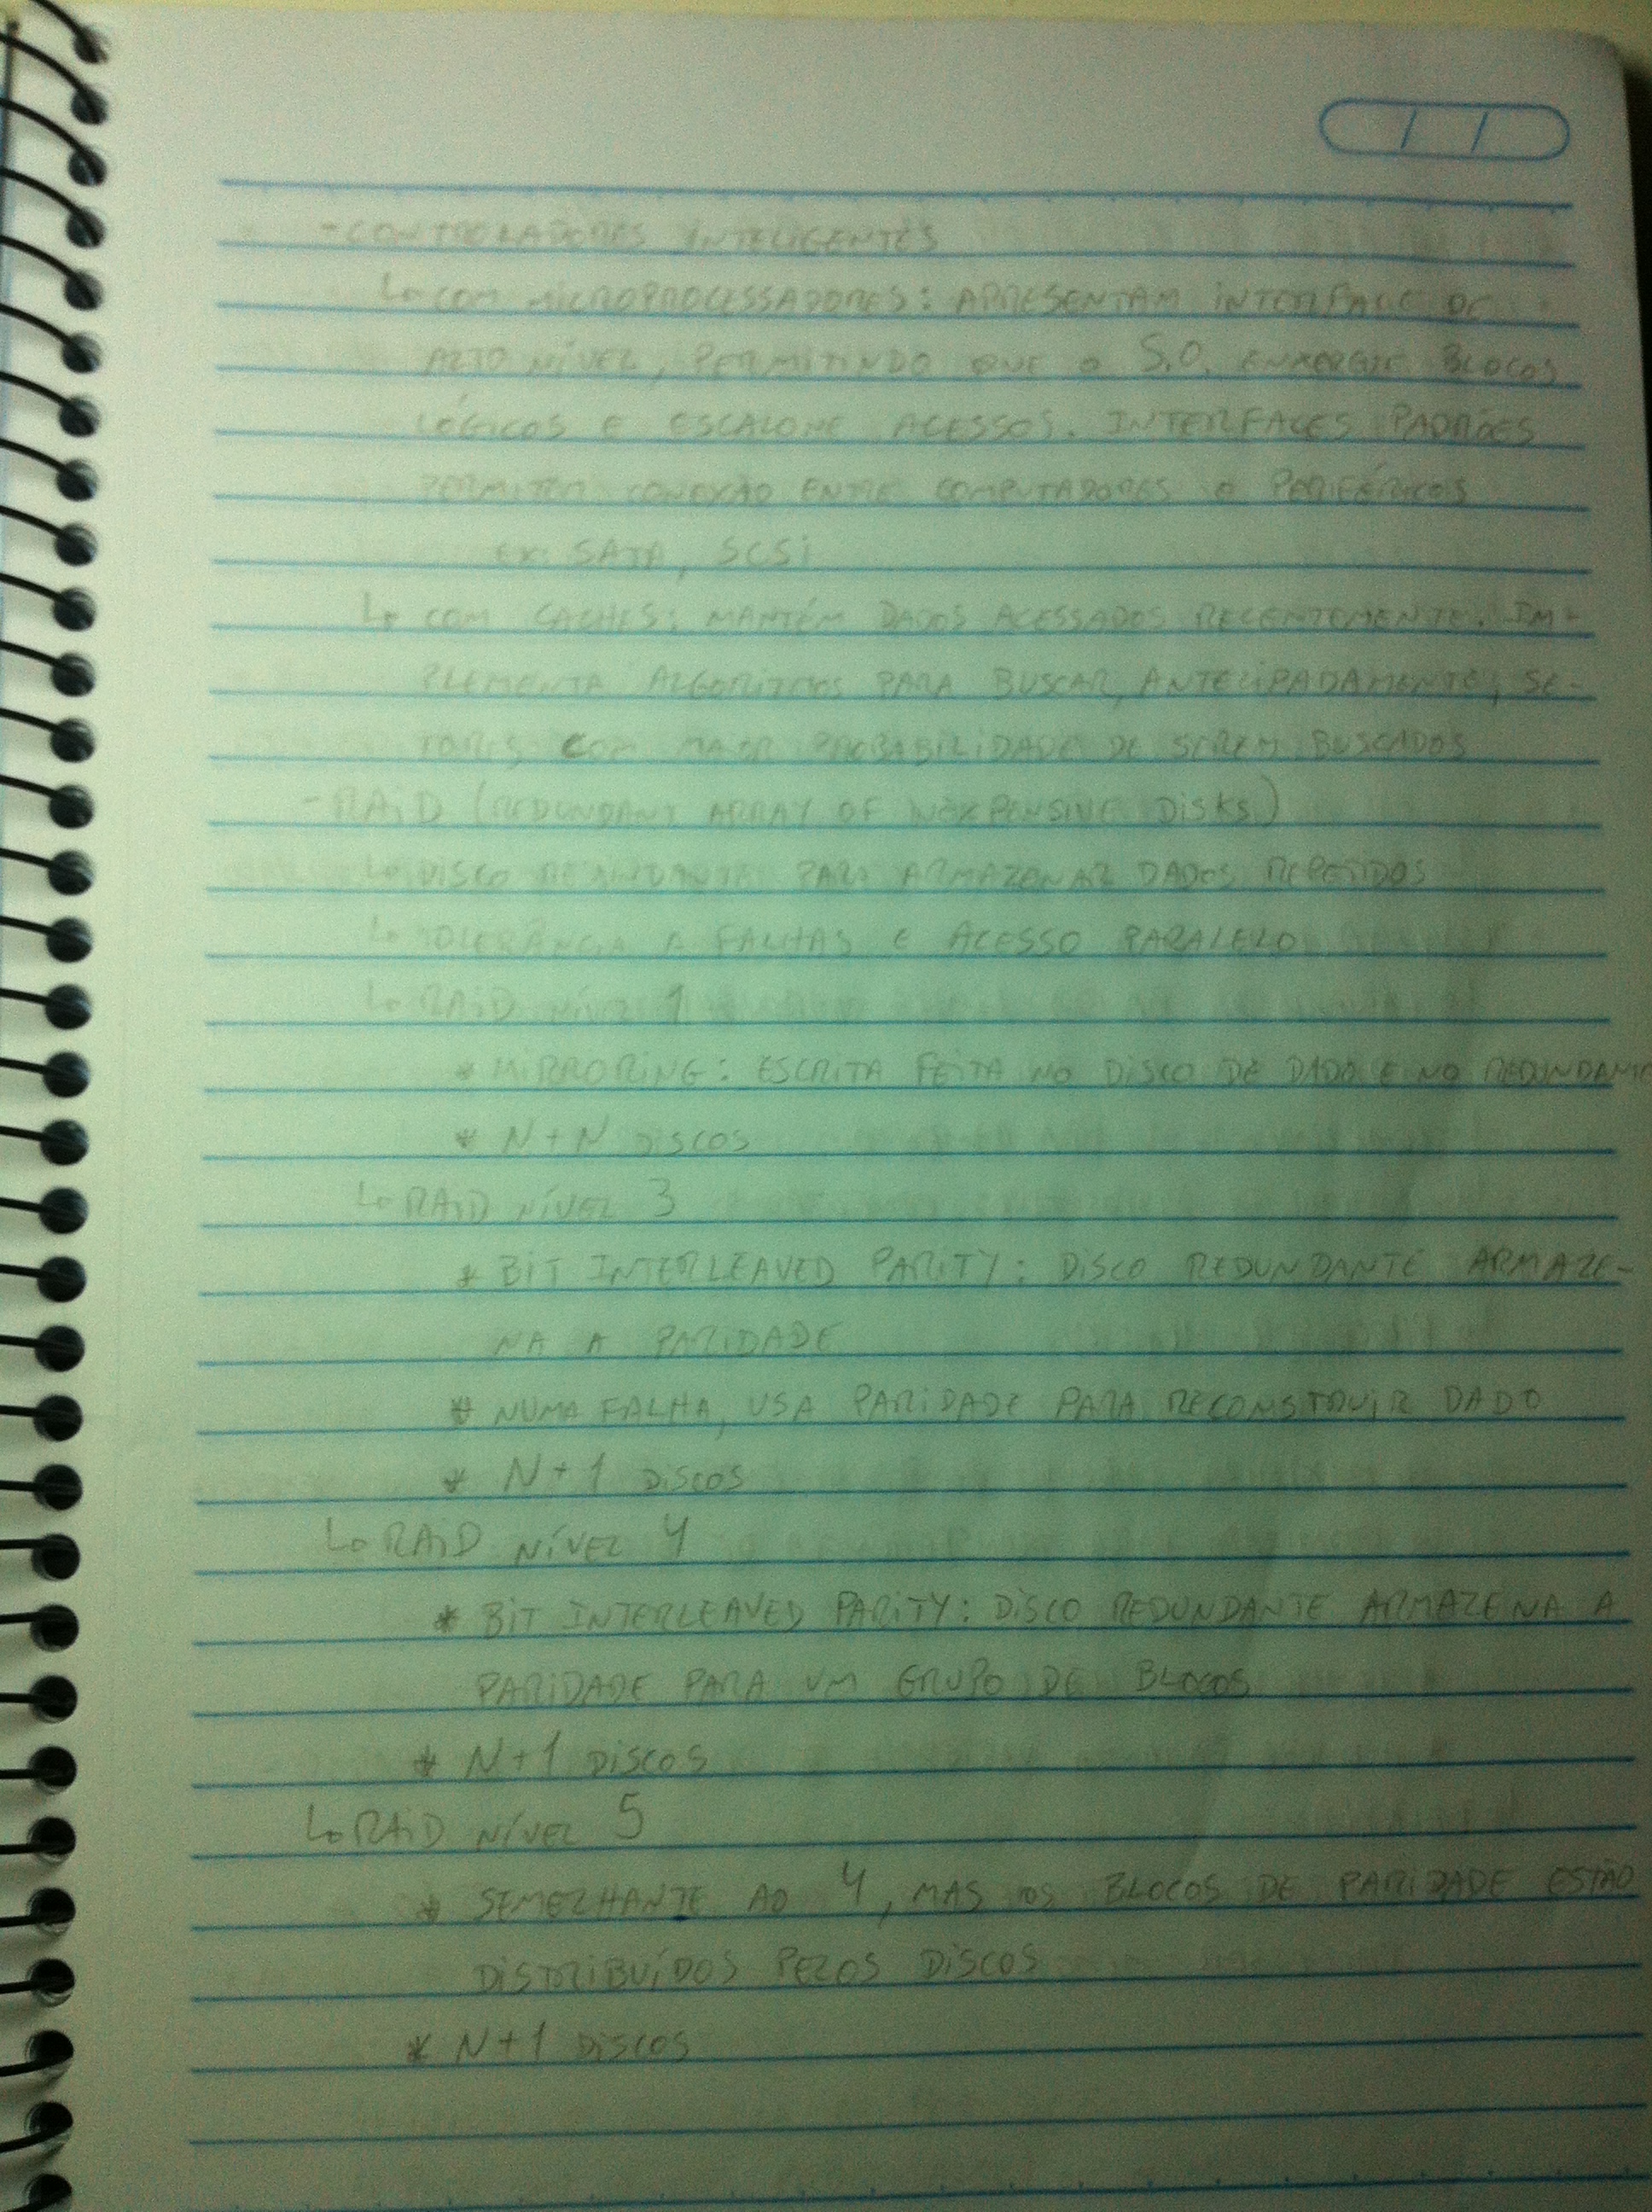 - CONTROLADORES INTELIGENTES
↳ COM MICROPROCESSADORES: APRESENTAM INTERFACE DE
ALTO NÍVEL, PERMITINDO QUE O S.O. ENXERGUE BLOCOS
LÓGICOS E ESCALONE ACESSOS. INTERFACES PADRÕES
PERMITEM CONEXÃO ENTRE COMPUTADORES e PERIFÉRICOS
EX: SATA, SCSI
↳ COM CACHES: MANTÉM DADOS ACESSADOS RECENTEMENTE. IM-
PLEMENTA ALGORITMOS PARA BUSCAR, ANTECIPADAMENTE, SE-
TORES COM MAIOR PROBABILIDADE DE SEREM BUSCADOS
- RAID (REDUNDANT ARRAY OF INEXPENSIVE DISKS)
↳ DISCO REDUNDANTE PARA ARMAZENAR DADOS REPETIDOS
↳ TOLERÂNCIA A FALHAS E ACESSO PARALELO
↳ RAID NÍVEL 1
* MIRRORING: ESCRITA FEITA NO DISCO DE DADO E NO REDUNDANTE
* N+N DISCOS
↳ RAID NÍVEL 3
* BIT INTERLEAVED PARITY: DISCO REDUNDANTE ARMAZE-
NA A PARIDADE
* NUMA FALHA, USA PARIDADE PARA RECONSTRUIR DADO
* N+1 DISCOS
↳ RAID NÍVEL 4
* BIT INTERLEAVED PARITY: DISCO REDUNDANTE ARMAZENA A
PARIDADE PARA UM GRUPO DE BLOCOS
* N+1 DISCOS
↳ RAID NÍVEL 5
* SEMELHANTE AO 4, MAS OS BLOCOS DE PARIDADE ESTÃO
DISTRIBUÍDOS PELOS DISCOS
* N+1 DISCOS